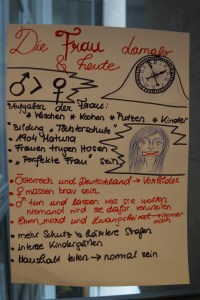 Die Frau damals
& heute
♂ > ♀
Aufgaben der Frau:
* Waschen * Kochen * Putzen * Kinder
• Bildung "Töchterschule"
• 1904 Matura
• Frauen trugen Hosen
• "Perfekte Frau" sein
• Österreich und Deutschland → Vorbilder
• ♀ müssen brav sein
• ♂ tun und lassen was sie wollen
niemand wird sie dafür verurteilen
• Ehrenmord und Zwangsheirat → immer noch
• mehr Schutz & härtere Strafen
• Interne Kindergärten
• Haushalt teilen → normal sein